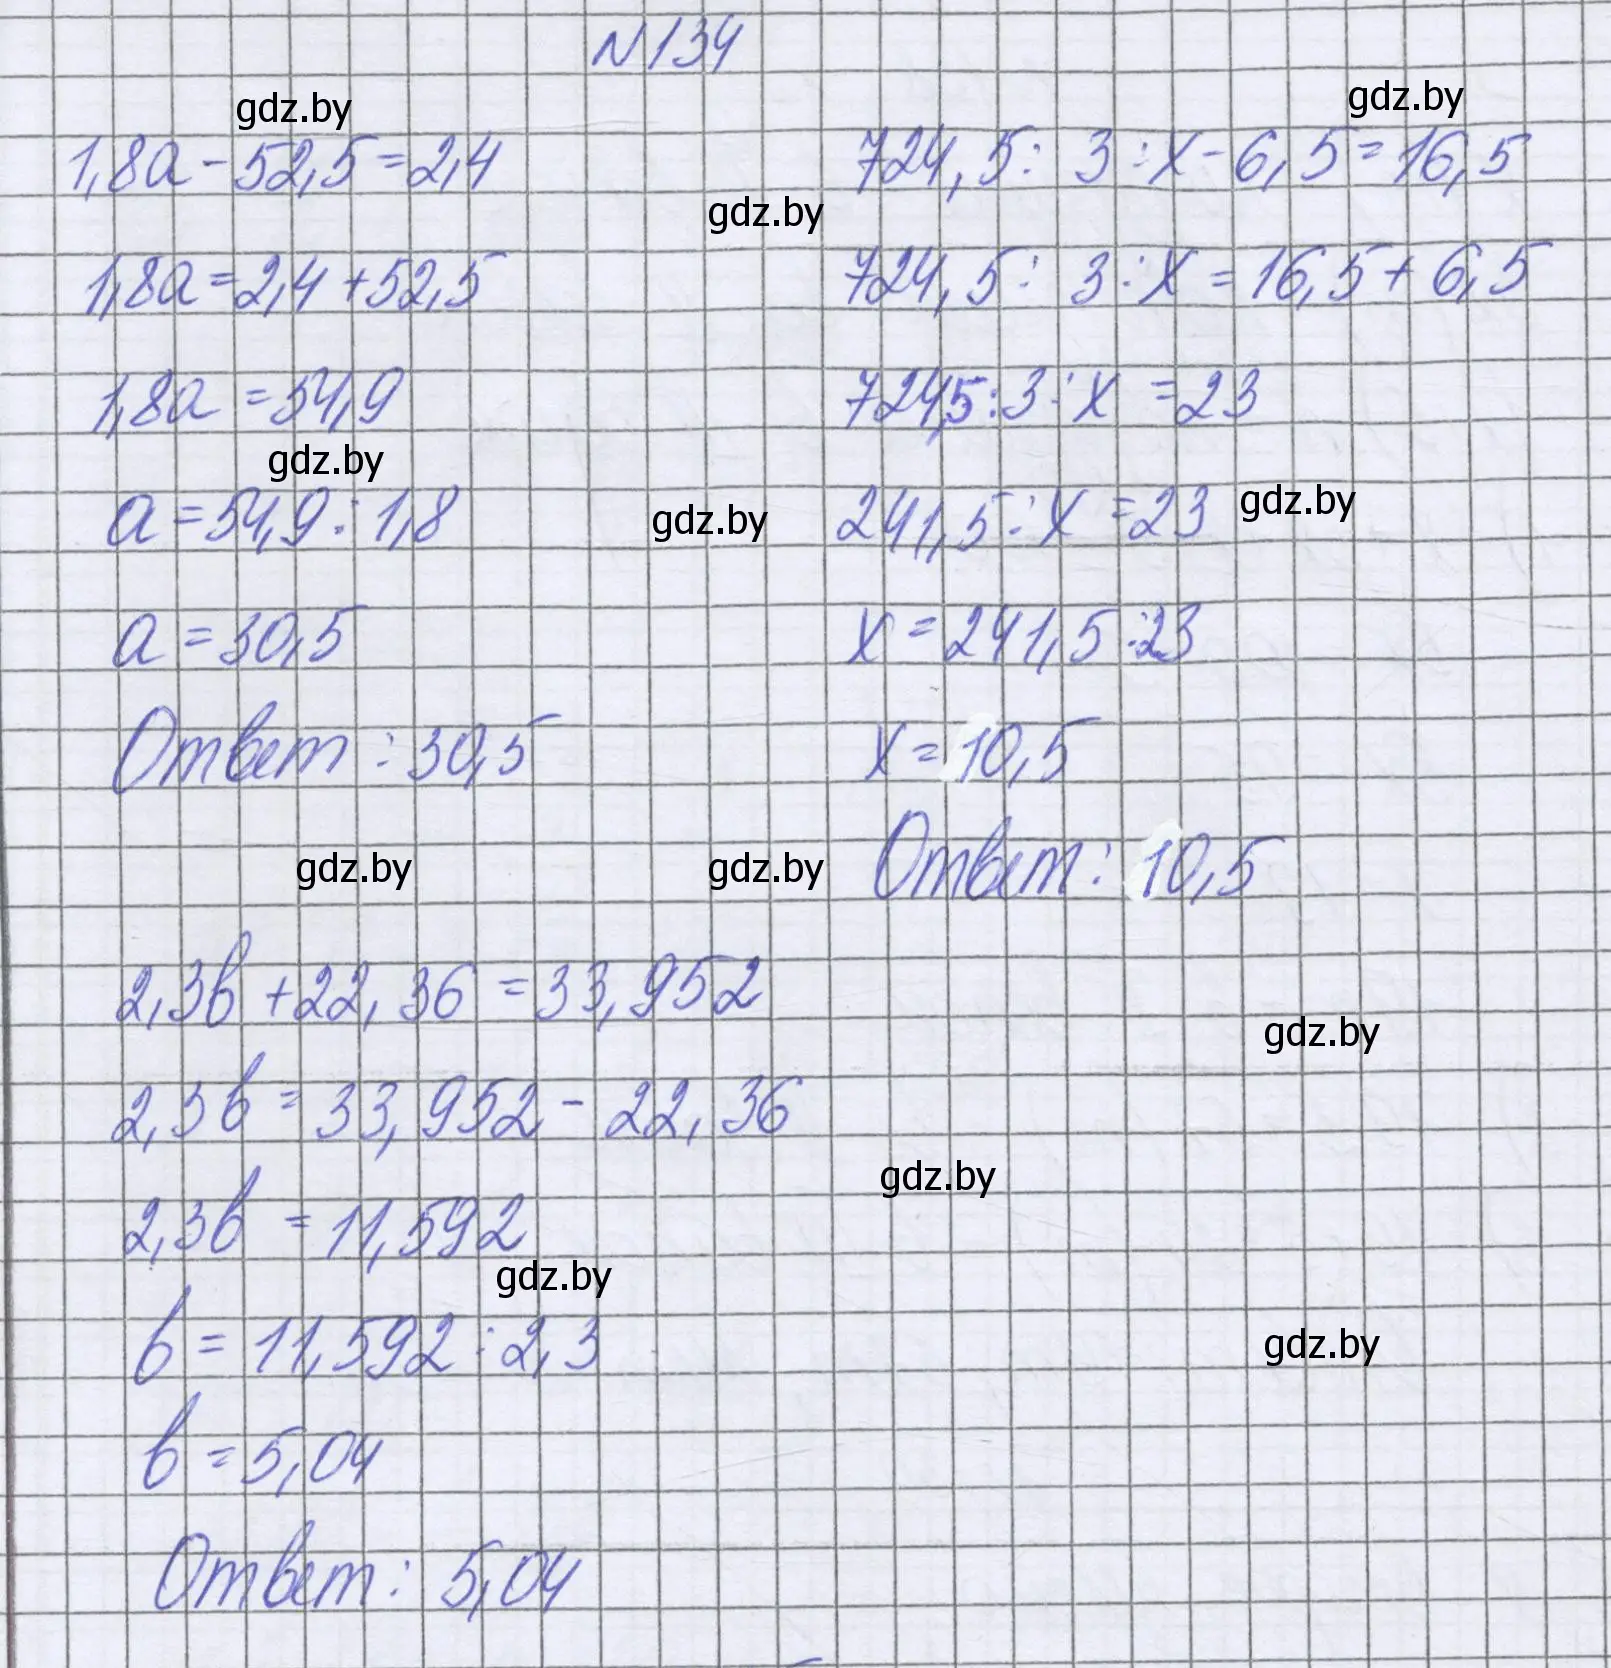 N134
gdz.by
gdz.by
1,8a - 52,5 = 2,4
1,8a = 2,4 + 52,5
1,8a = 54,9
gdz.by
a = 54,9 : 1,8
a = 30,5
Ответ : 30,5
gdz.by
724,5 : 3 : x - 6,5 = 16,5
724,5 : 3 : x = 16,5 + 6,5
724,5 : 3 : x = 23
gdz.by
gdz.by
241,5 : x = 23
x = 241,5 : 23
x = 10,5
Ответ : 10,5
gdz.by
gdz.by
2,3b + 22,36 = 33,952
gdz.by
2,3b = 33,952 - 22,36
gdz.by
2,3b = 11,592
gdz.by
b = 11,592 : 2,3
gdz.by
b = 5,04
Ответ : 5,04